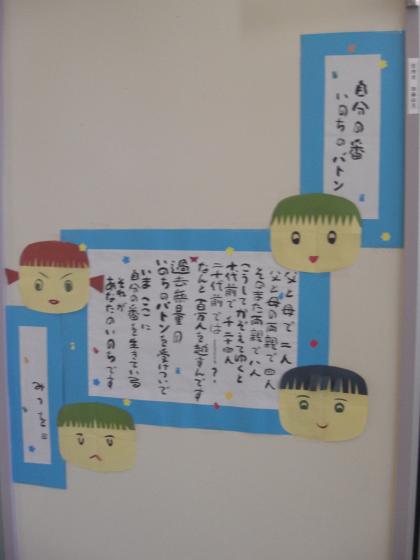 自分の番
いのちのバトン
父と母で二人
父と母の両親で四人
そのまた両親で八人
こうしてかぞえてゆくと
十代前で千二十四人
二十代前では――?
なんと百万人を越すんです
過去無量の
いのちのバトンを受けついで
いまここに
自分の番を生きている
それが
あなたのいのちです
みつを